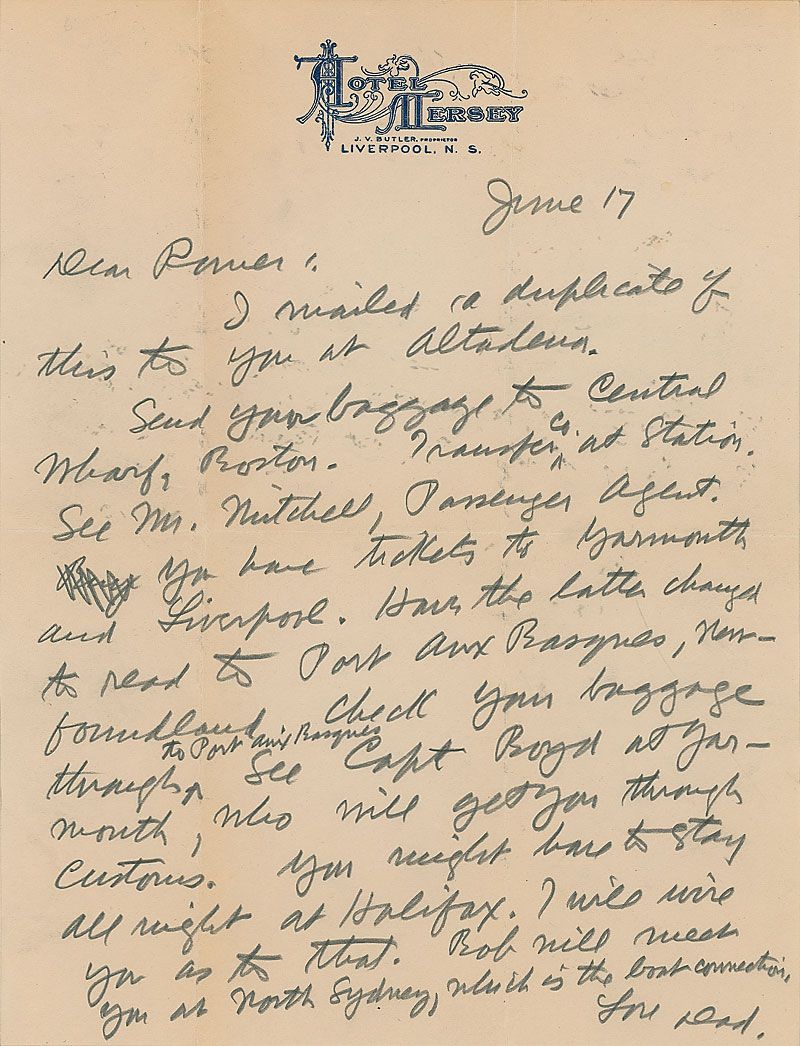 HOTEL
MERSEY
J. V. BUTLER, PROPRIETOR
LIVERPOOL, N. S.
June 17
Dear Romer :
I mailed a duplicate of
this to you at Altadena.
Send your baggage to Central
Wharf, Boston. Transfer Co. at Station.
See Mr. Mitchell, Passenger Agent.
You have tickets to Yarmouth
and Liverpool. Have the latter changed
to read to Port Aux Basques, New-
foundland. Check your baggage
through to Port aux Basques. See Capt Boyd at Yar-
mouth, who will get you through
Customs. You might have to stay
all night at Halifax. I will wire
you as to that. Bob will meet
you at North Sydney, which is the boat connection.
Love Dad.